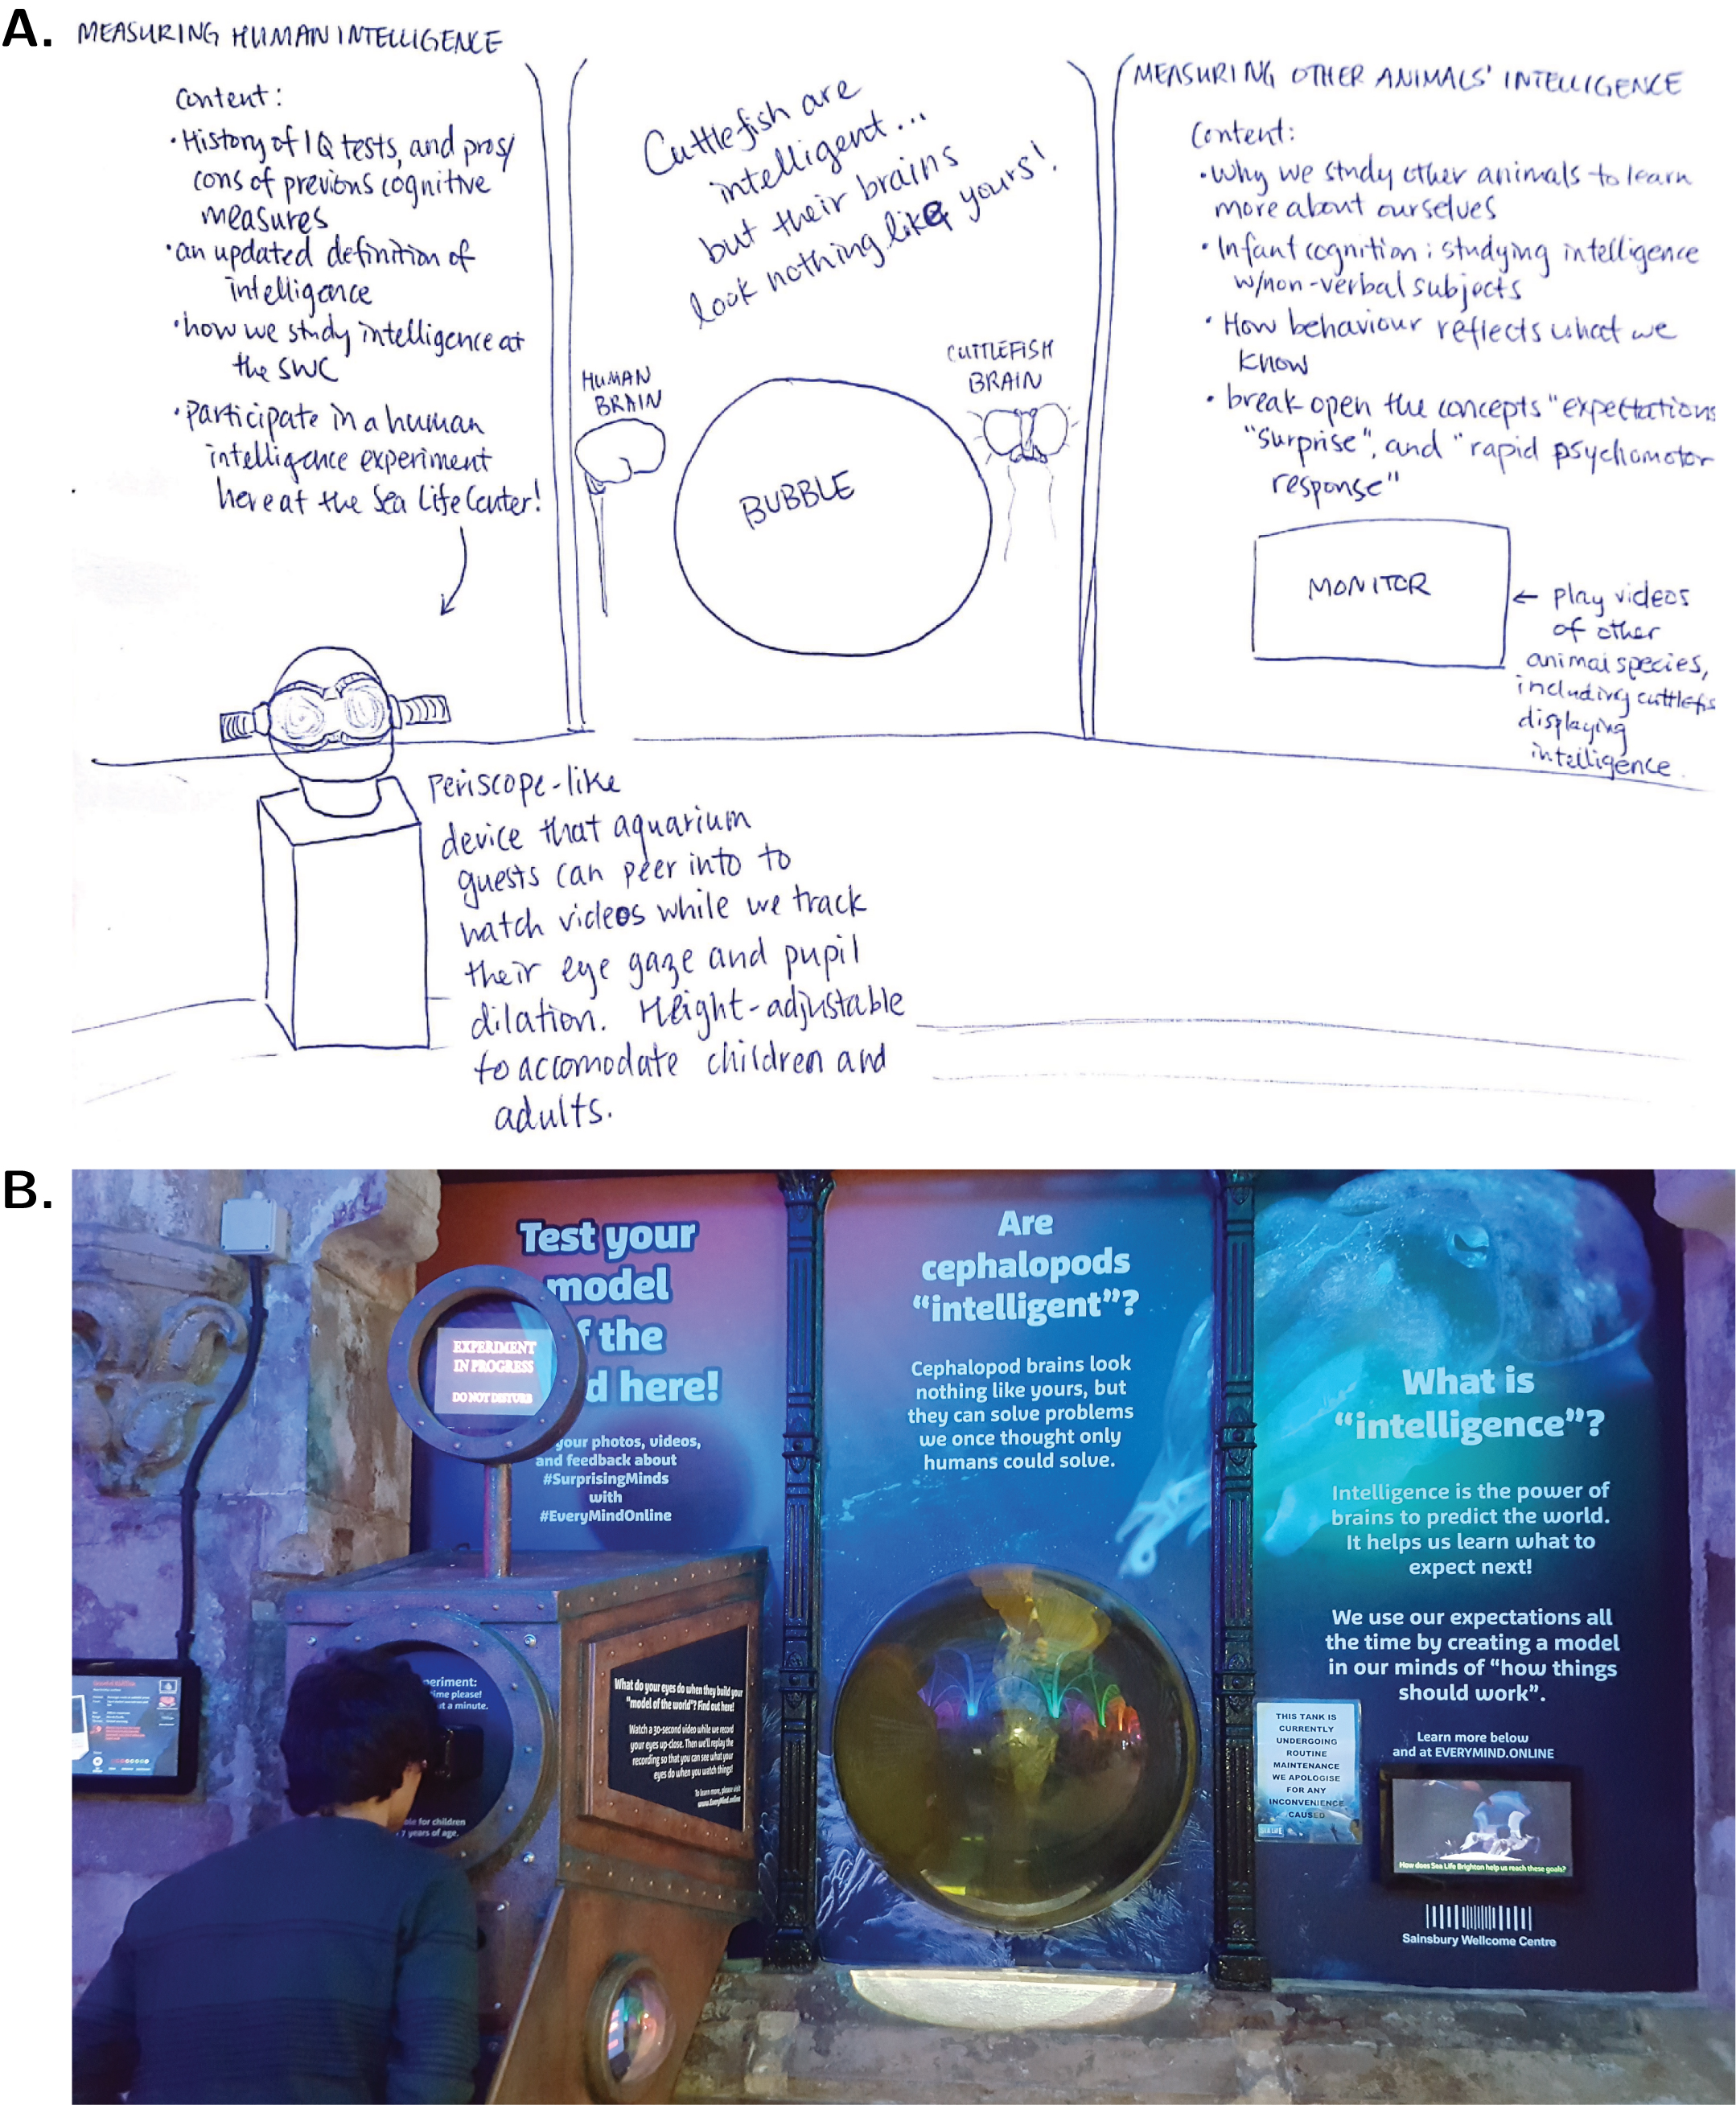 A.
MEASURING HUMAN INTELLIGENCE
Content:
•History of IQ tests, and pros/
cons of previous cognitive
measures
•an updated definition of
intelligence
•how we study intelligence at
the SWC
•Participate in a human
intelligence experiment
here at the Sea Life Center!
Cuttlefish are
intelligent...
but their brains
look nothing like yours!
HUMAN
BRAIN
BUBBLE
CUTTLEFISH
BRAIN
MEASURING OTHER ANIMALS' INTELLIGENCE
Content:
•Why we study other animals to learn
more about ourselves
•Infant cognition: studying intelligence
w/non-verbal subjects
•How behaviour reflects what we
know
•break open the concepts "expectations
"surprise", and "rapid psychomotor
response"
MONITOR
← play videos
of other
animal species,
including cuttlefis
displaying
intelligence.
Periscope-like
device that aquarium
guests can peer into to
watch videos while we track
their eye gaze and pupil
dilation. Height-adjustable
to accomodate children and
adults.
B.
Test your
model
f the
d here!
EXPERIMENT
IN PROGRESS
DO NOT DISTURB
your photos, videos,
and feedback about
#SurprisingMinds
with
#EveryMindOnline
periment:
ime please!
ut a minute.
What do your eyes do when they build your
"model of the world"? Find out here!
Watch a 30-second video while we record
your eyes up-close. Then we'll replay the
recording so that you can see what your
eyes do when you watch things!
To learn more, please visit
www.EveryMind.online
ble for children
7 years of age.
Are
cephalopods
“intelligent”?
Cephalopod brains look
nothing like yours, but
they can solve problems
we once thought only
humans could solve.
What is
“intelligence”?
Intelligence is the power of
brains to predict the world.
It helps us learn what to
expect next!
We use our expectations all
the time by creating a model
in our minds of “how things
should work”.
Learn more below
and at EVERYMIND.ONLINE
THIS TANK IS
CURRENTLY
UNDERGOING
ROUTINE
MAINTENANCE
WE APOLOGISE
FOR ANY
INCONVENIENCE
CAUSED
SEA LIFE
How does Sea Life Brighton help us reach these goals?
Sainsbury Wellcome Centre